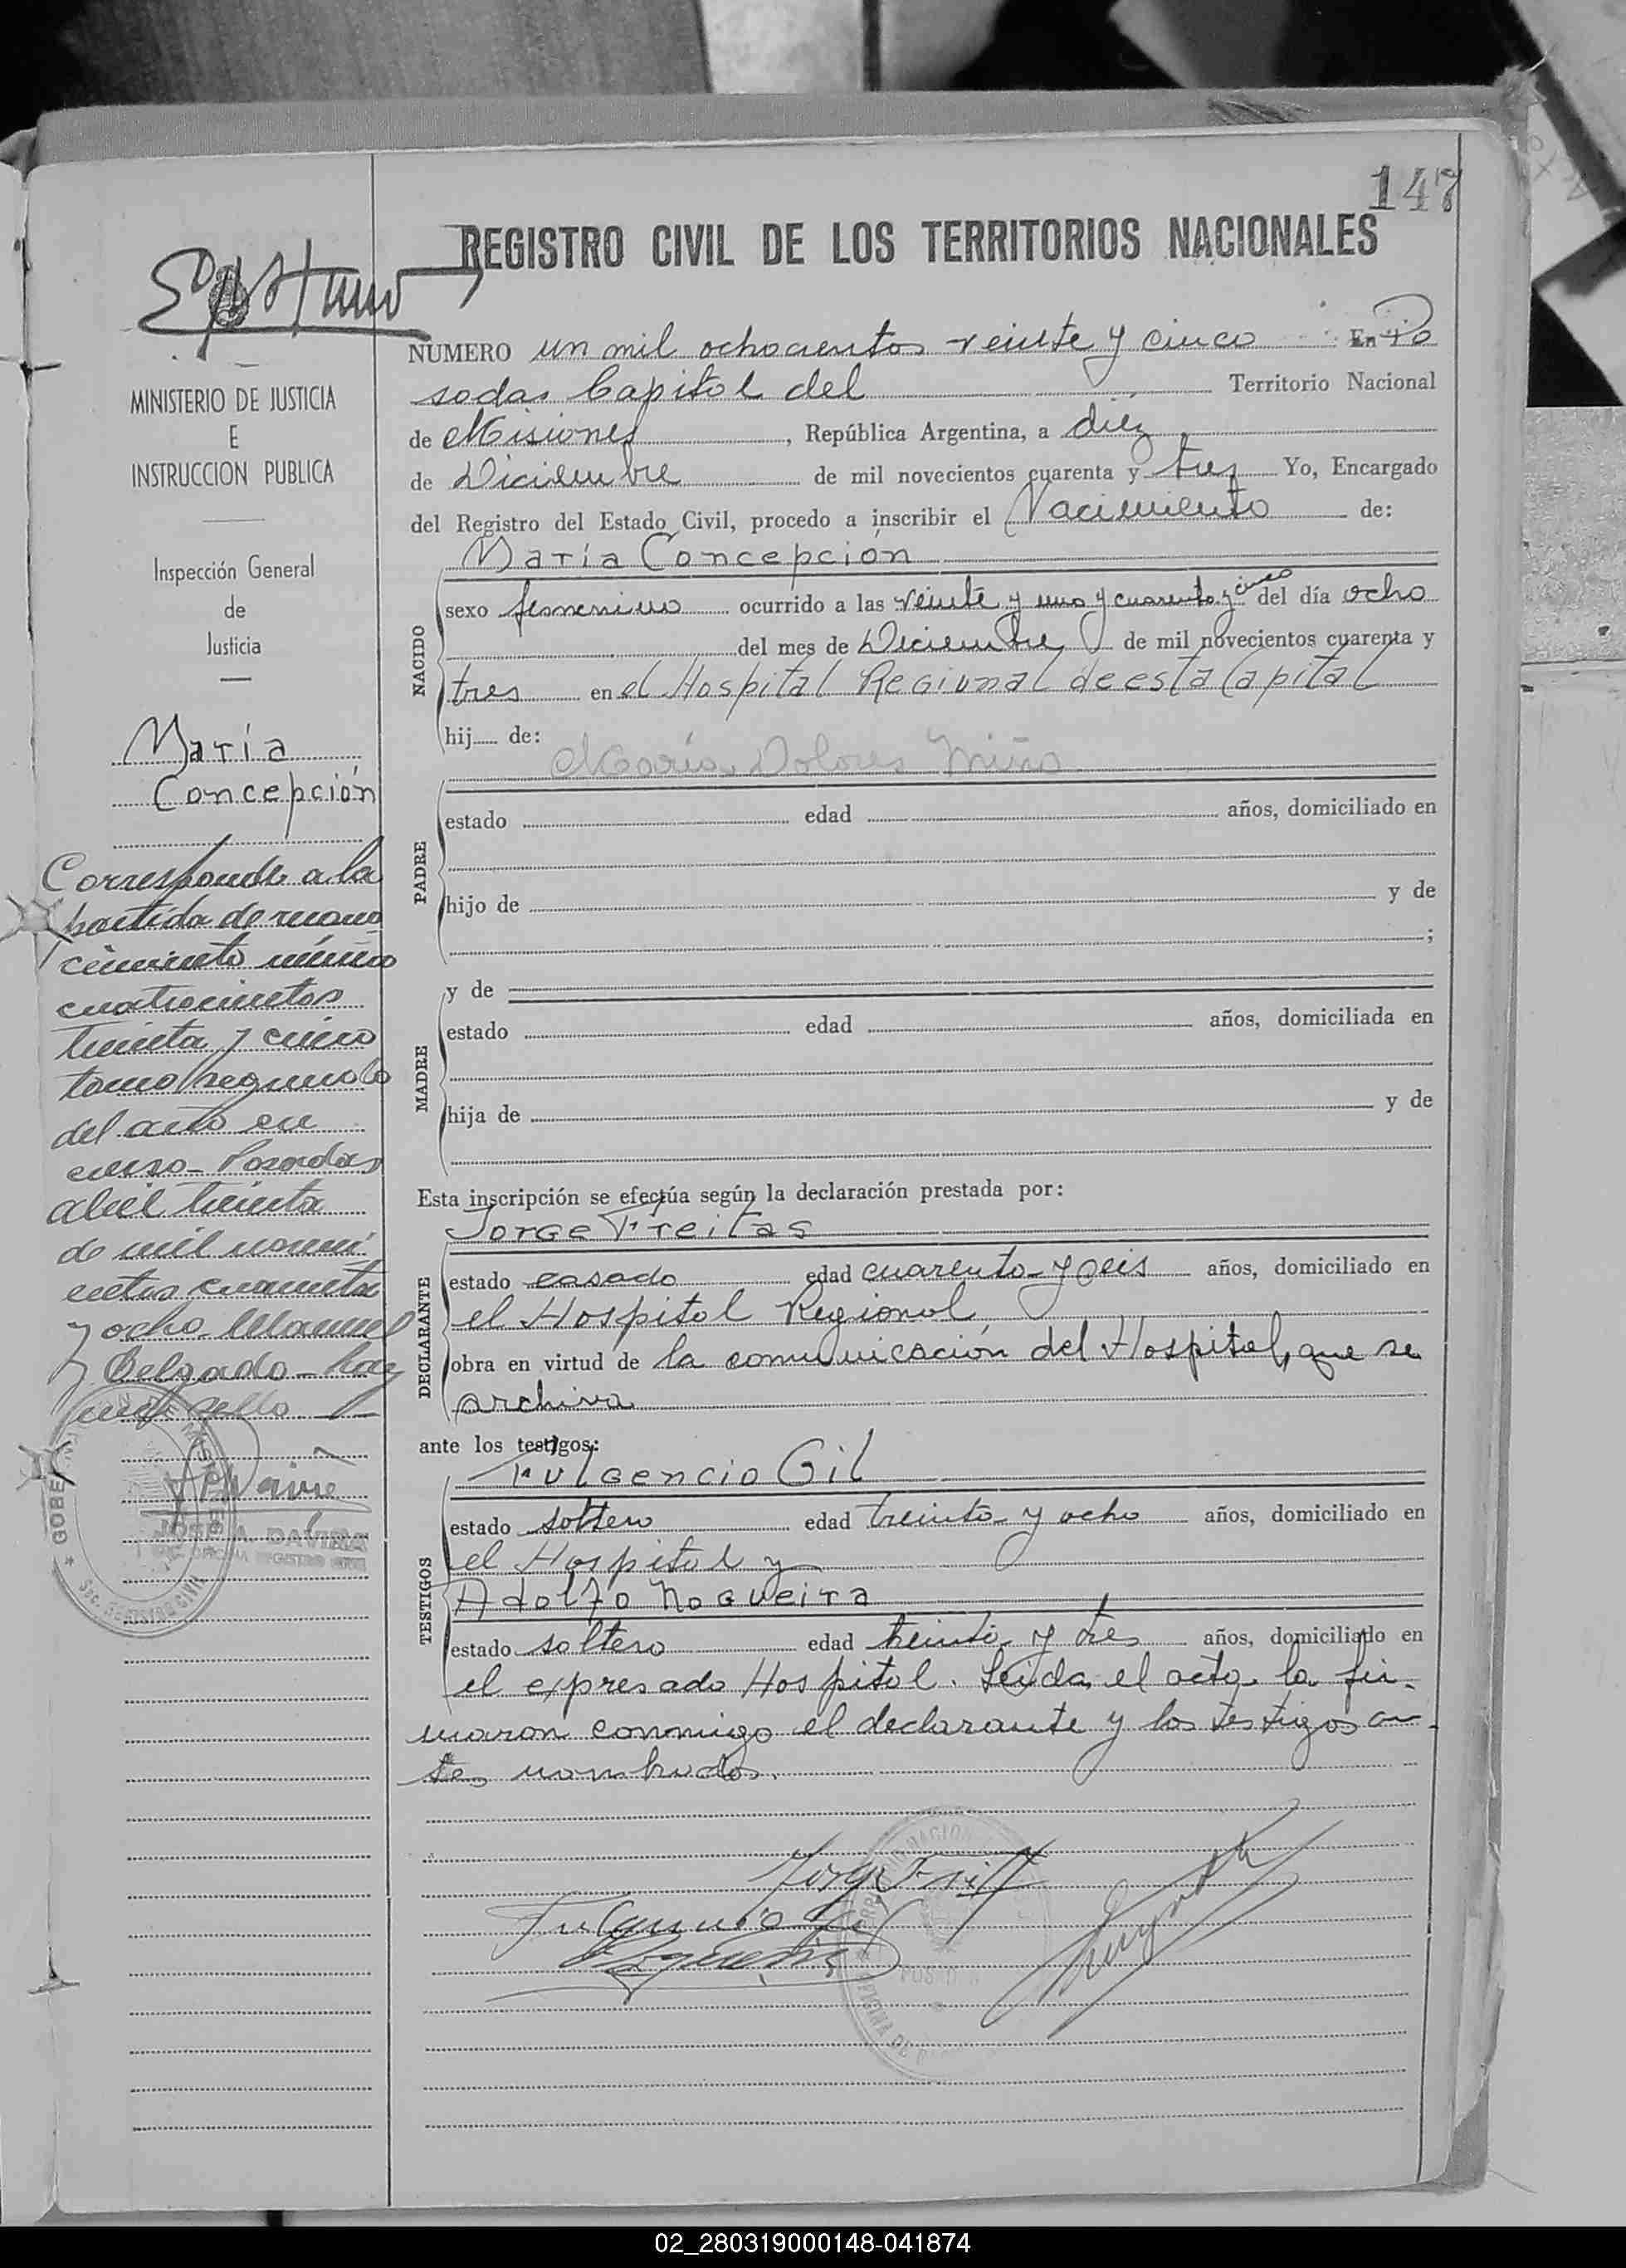 147
REGISTRO CIVIL DE LOS TERRITORIOS NACIONALES
MINISTERIO DE JUSTICIA
E
INSTRUCCION PUBLICA
Inspección General
de
Justicia
María
Concepción
Corresponde a la
partida de recono
cimiento número
cuatrocientos
treinta y cinco
tomo segundo
del año en
curso - Posadas
abril treinta
de mil noveci
entos cuarenta
y ocho - Manuel
Belgado - hay
un sello
JOSE A. DAVIÑA
OFICINA REGISTRO CIVIL
NUMERO un mil ochocientos veinte y cinco En Po
sadas Capital del Territorio Nacional
de Misiones, República Argentina, a diez
de Diciembre de mil novecientos cuarenta y tres Yo, Encargado
del Registro del Estado Civil, procedo a inscribir el Nacimiento de:
María Concepción
NACIDO
sexo femenino ocurrido a las veinte y una y cuarenta y cinco del día ocho
del mes de Diciembre de mil novecientos cuarenta y
tres en el Hospital Regional de esta Capital
hij de:
María Dolores Miño
PADRE
estado edad años, domiciliado en
hijo de y de
;
y de
MADRE
estado edad años, domiciliada en
hija de y de
Esta inscripción se efectúa según la declaración prestada por:
Jorge Freitas
DECLARANTE
estado casado edad cuarenta y seis años, domiciliado en
el Hospital Regional
obra en virtud de la comunicación del Hospital, que se
archiva
ante los testigos:
Fulgencio Gil
TESTIGOS
estado soltero edad treinta y ocho años, domiciliado en
el Hospital y
Adolfo Nogueira
estado soltero edad treinta y tres años, domiciliado en
el expresado Hospital. Leída el acta la fir-
maron conmigo el declarante y los testigos an-
tes nombrados.
Fulgencio Gil
02_280319000148-041874